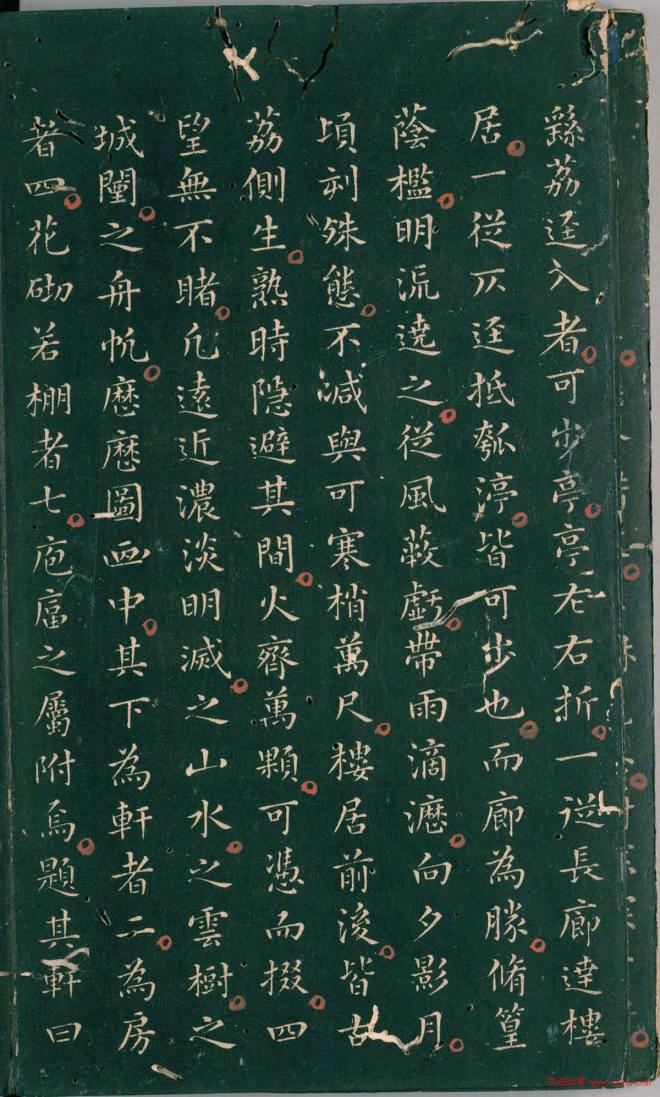 繇荔逕入者可步亭亭左右折一從長廊達樓
居一從仄逕抵瓠渟皆可步也而廊為勝脩篁
蔭檻明流遶之從風蔽虧帶雨滴瀝向夕影月
頃刻殊態不減與可寒梢萬尺樓居前後皆古
荔側生熟時隱避其間火齊萬顆可憑而掇四
望無不睹凡遠近濃淡明滅之山水之雲樹之
城闉之舟帆歷歷圖画中其下為軒者二為房
者四花砌若棚者七庖湢之屬附焉題其軒曰